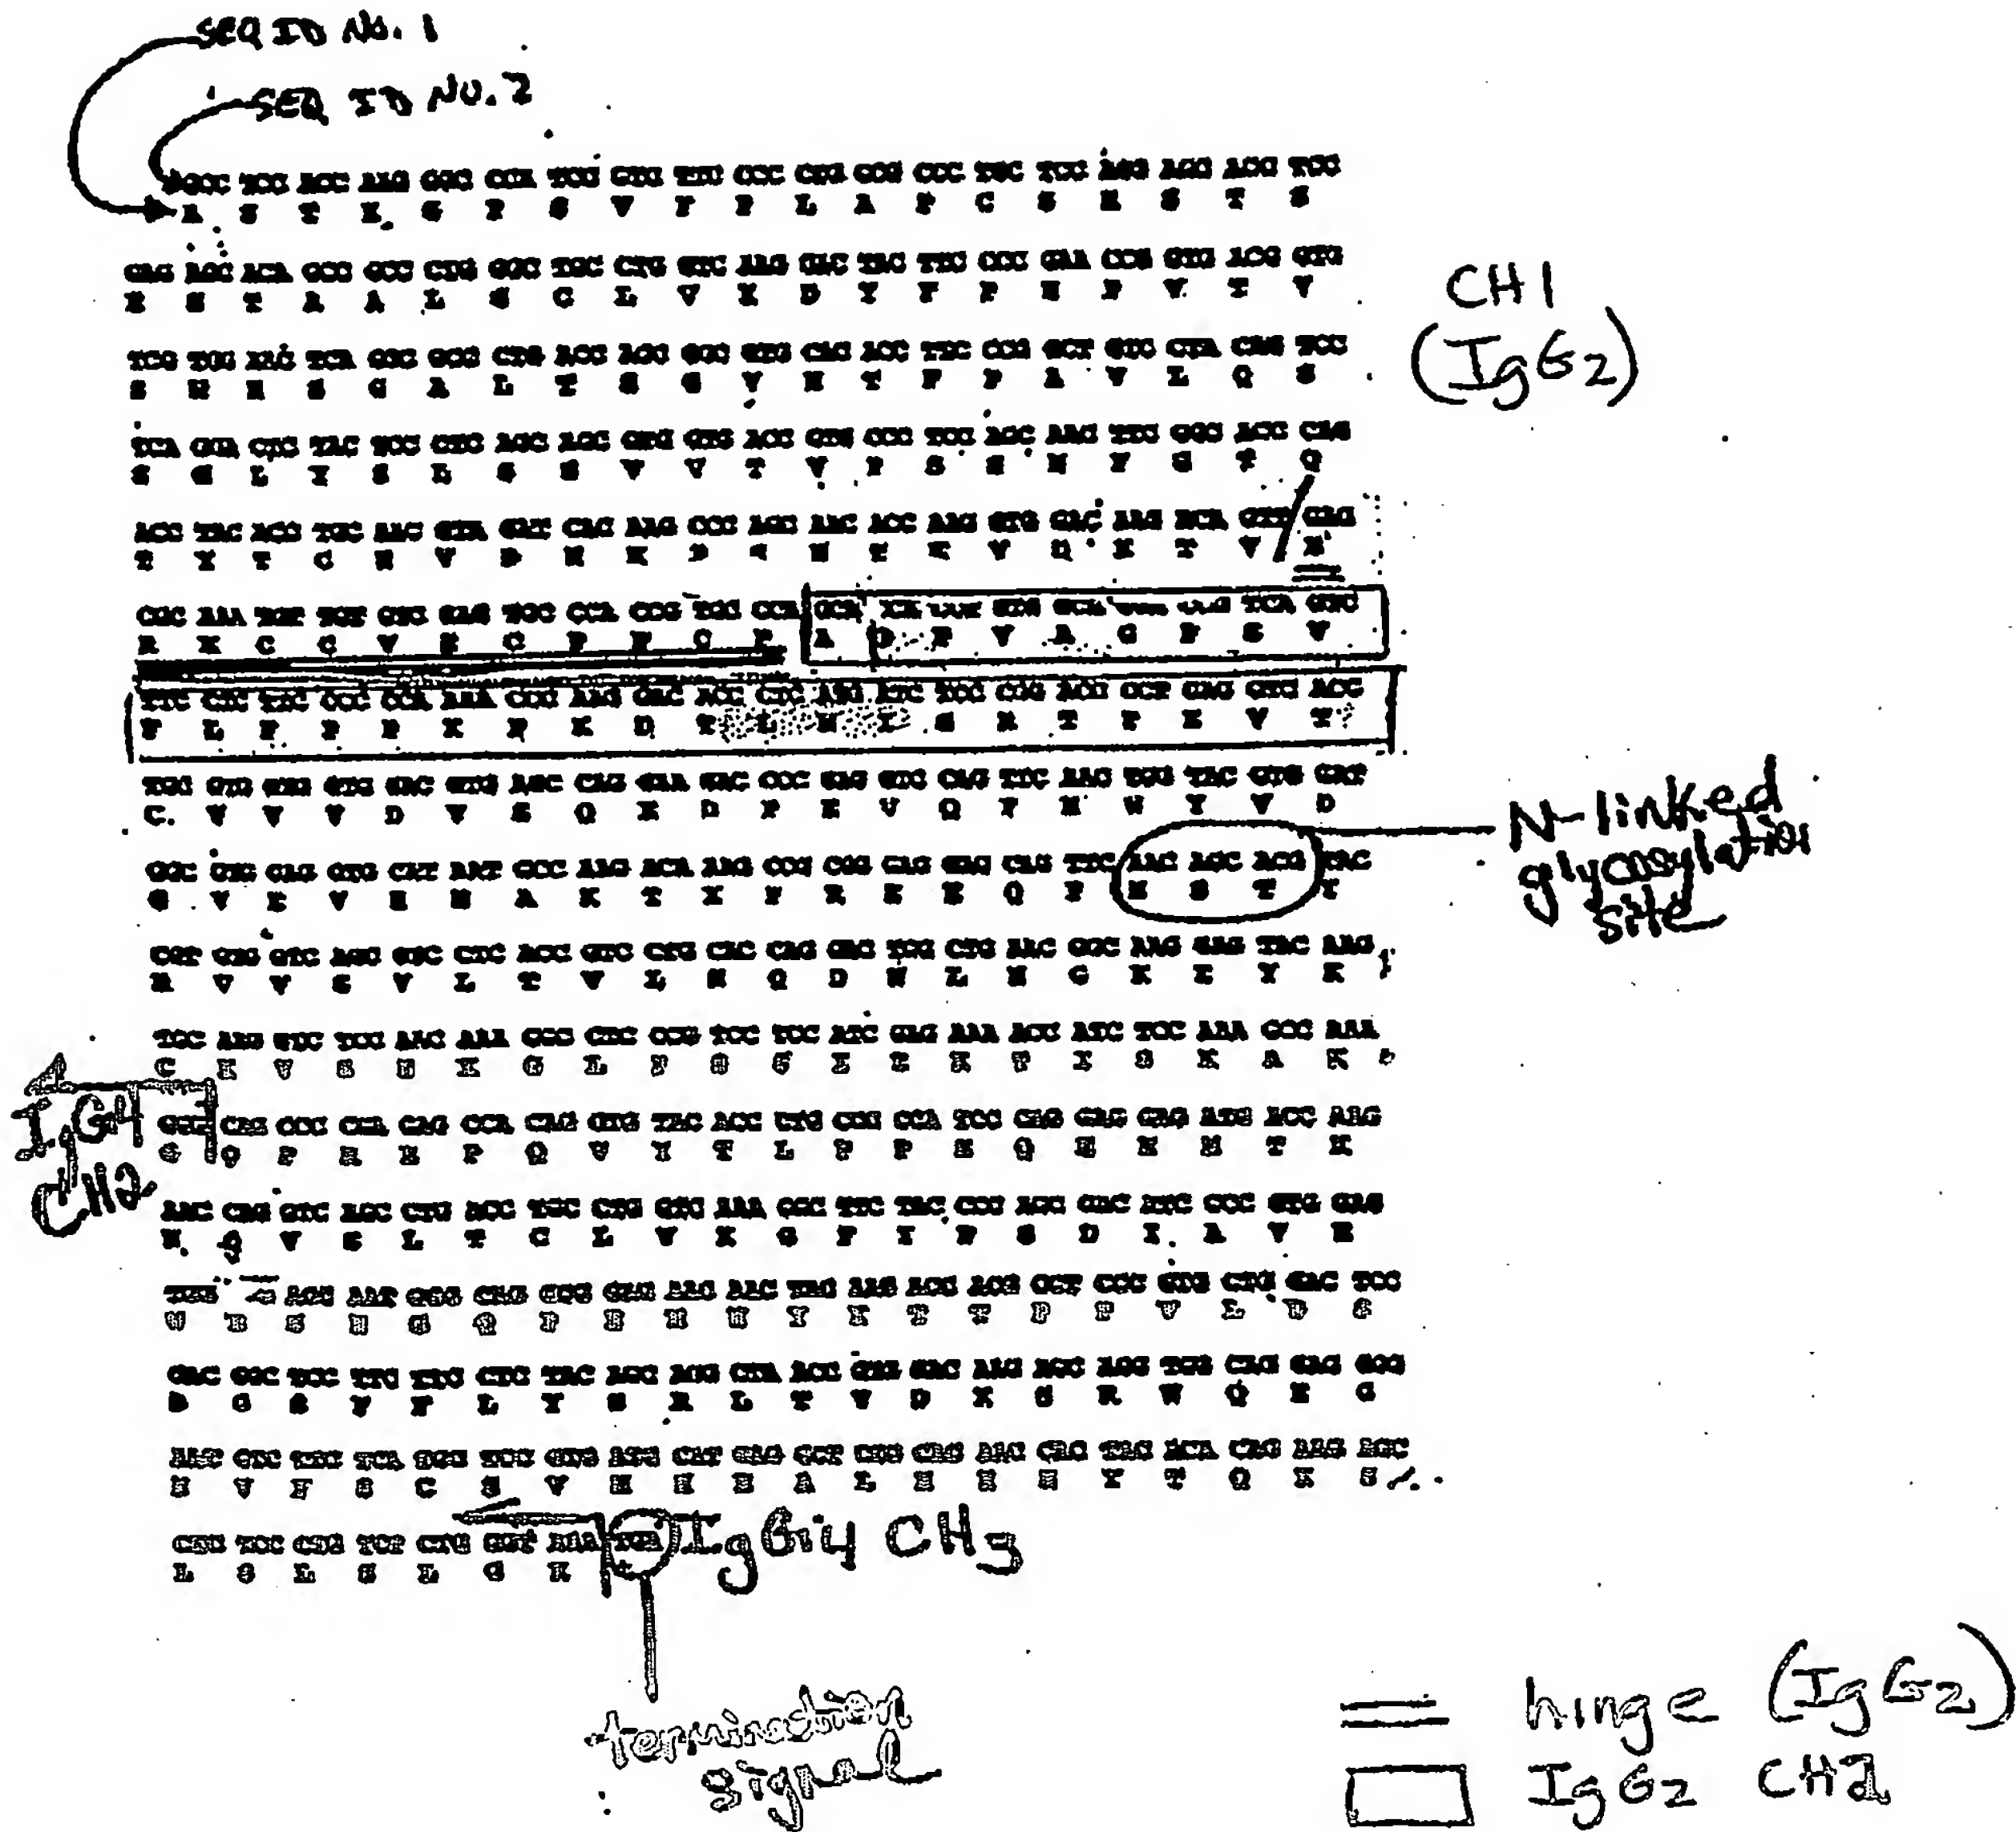 SEQ ID NO. 1
SEQ ID NO. 2
GCC TCC ACC AAG GGC CCA TCG GTC TTC CCC CTG GCG CCC TGC TCC AGG AGC ACC TCC
A S T K G P S V F P L A P C S R S T S
GAG AGC ACA GCC GCC CTG GGC TGC CTG GTC AAG GAC TAC TTC CCC GAA CCG GTG ACG GTG
E S T A A L G C L V K D Y F P E P V T V
CH1
TCG TGG AAC TCA GGC GCC CTG ACC AGC GGC GTG CAC ACC TTC CCG GCT GTC CTA CAG TCC
(IgG2)
S W N S G A L T S G V H T F P A V L Q S
TCA GGA CTC TAC TCC CTC AGC AGC GTG GTG ACC GTG CCC TCC AGC AAC TTC GGC ACC CAG
S G L Y S L S S V V T V P S S N F G T Q
ACC TAC ACC TGC AAC GTA GAT CAC AAG CCC AGC AAC ACC AAG GTG GAC AAG ACA GTT GAG
T Y T C N V D H K P S N T K V D K T V E
CGC AAA TGT TGT GTC GAG TGC CCA CCG TGC CCA GCA GTG GCA TCA GTC
R K C C V E C P P C P A P P V A G P S V
TTC CTC TTC CCC CCA AAA CCC AAG GAC ACC CTC ATG ATC TCC CGG ACC CCT GAG GTC ACG
F L F P P K P K D T L M I S R T P E V T
TGC GTG GTG GTG GAC GTG AGC CAG GAA GAC CCC GAG GTC CAG TTC AAC TGG TAC GTG GAT
C V V V D V S Q E D P E V Q F N W Y V D
N-linked
glycosylation
site
GGC GTG GAG GTG CAT AAT GCC AAG ACA AAG CCG CGG GAG GAG CAG TTC AAC AGC ACG TAC
G V E V H N A K T K P R E E Q F N S T Y
CGT GTG GTC AGC GTC CTC ACC GTC CTG CAC CAG GAC TGG CTG AAC GGC AAG GAG TAC AAG
R V V S V L T V L H Q D W L N G K E Y K
TGC AAG GTC TCC AAC AAA GGC CTC CCG TCC TCC ATC GAG AAA ACC ATC TCC AAA GCC AAA
C K V S N K G L P S S I E K T I S K A K
IgG4
CH2
GGG CAG CCC CGA GAG CCA CAG GTG TAC ACC CTG CCC CCA TCC CAG GAG GAG ATG ACC AAG
G Q P R E P Q V Y T L P P S Q E E M T K
AAC CAG GTC AGC CTG ACC TGC CTG GTC AAA GGC TTC TAC CCC AGC GAC ATC GCC GTG GAG
N Q V S L T C L V K G F Y P S D I A V E
TGG AGC AAT GGG CAG CCG GAG AAC AAC TAC AAG ACC ACG CCT CCC GTG CTG GAC TCC
W E S N G Q P E N N Y K T T P P V L D S
GAC GGC TCC TTC TTC CTC TAC AGC AGG CTA ACC GTG GAC AAG AGC AGG TGG CAG GAG GGG
D G S F F L Y S R L T V D K S R W Q E G
AAT GTC TTC TCA TGC TCC GTG ATG CAT GAG GCT CTG CAC AAC CAC TAC ACA CAG AAG AGC
N V F S C S V M H E A L H N H Y T Q K S
CTC TCC CTG TCT CTG GGT AAA TGA IgG4 CH3
L S L S L G K
termination
signal
hinge (IgG2)
IgG2 CH2